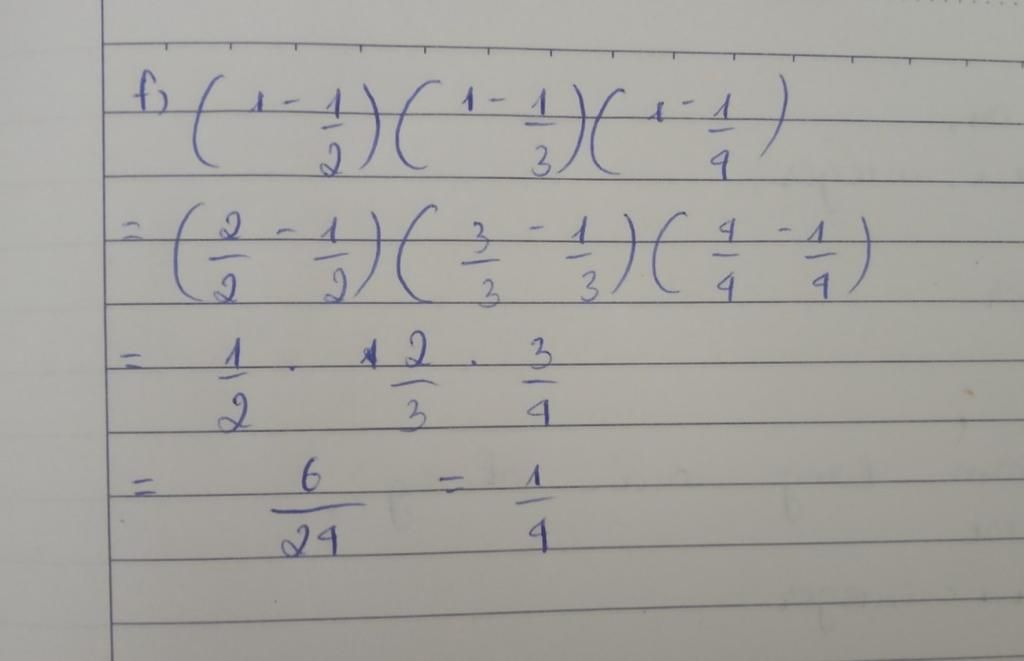 f) (1 - 1/2)(1 - 1/3)(1 - 1/4)
= (2/2 - 1/2)(3/3 - 1/3)(4/4 - 1/4)
= 1/2 . 2/3 . 3/4
= 6/24 = 1/4